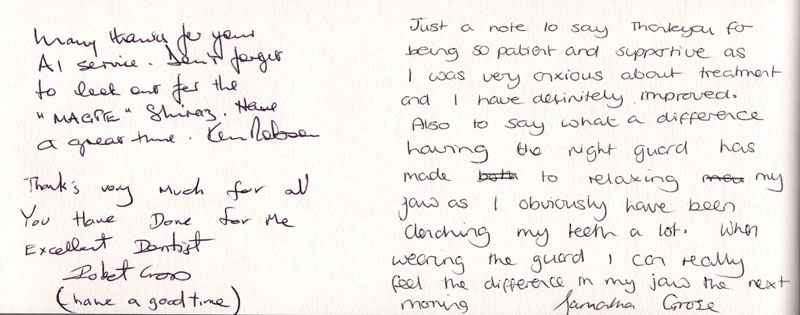 Many thanks for your
A1 service. Don't forget
to look out for the
"MAGPIE" Shiraz. Have
a great time. Ken
Thank's very Much for all
You Have Done for Me
Excellent Dentist
Robet
(have a good time)
Just a note to say Thankyou for
being so patient and supportive as
I was very anxious about treatment
and I have definitely improved.
Also to say what a difference
having the night guard has
made to relaxing my
jaw as I obviously have been
clenching my teeth a lot. When
wearing the guard I can really
feel the difference in my jaw the next
morning Samantha Grose